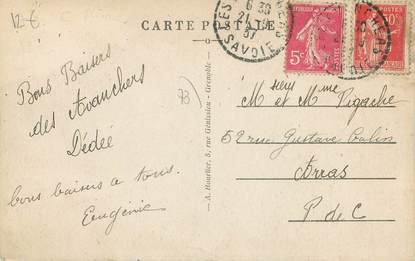 12 €
CARTE POSTALE
6 30
21
37
SAVOIE
5c
Bons Baisers
des Avanchers
Dédée
bons baisers a tous.
Eugénie
73
A. Hourlier, 8, rue Génissieu - Grenoble
Msieur Mme Pigache
52 rue Gustave Colin
Arras
P de C